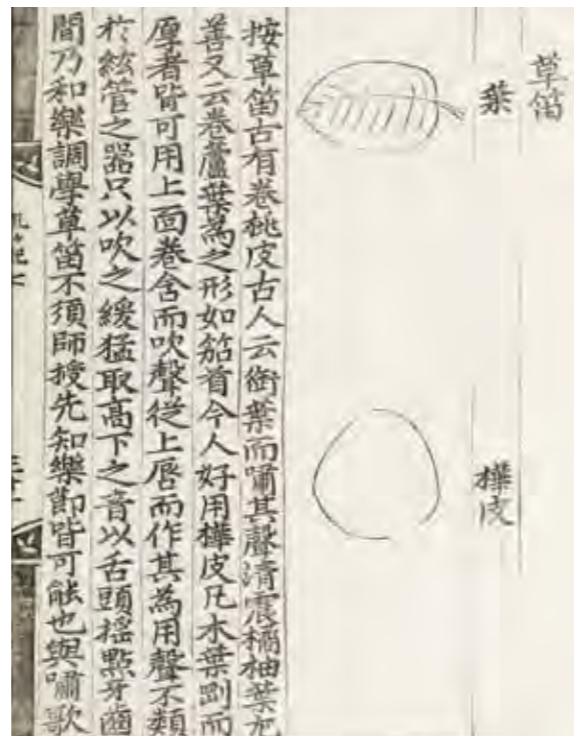 草笛
葉
樺皮
按草笛古有卷桃皮古人云銜葉而嘯其聲清震橘柚葉尤
善又云卷蘆葉爲之形如笳首今人好用樺皮凡木葉剛而
厚者皆可用上面卷舍而吹聲從上唇而作其爲用聲不類
於絃管之器只以吹之緩猛取高下之音以舌頭搖點牙齒
間乃和樂調學草笛不須師授先知樂節皆可能也與嘯歌